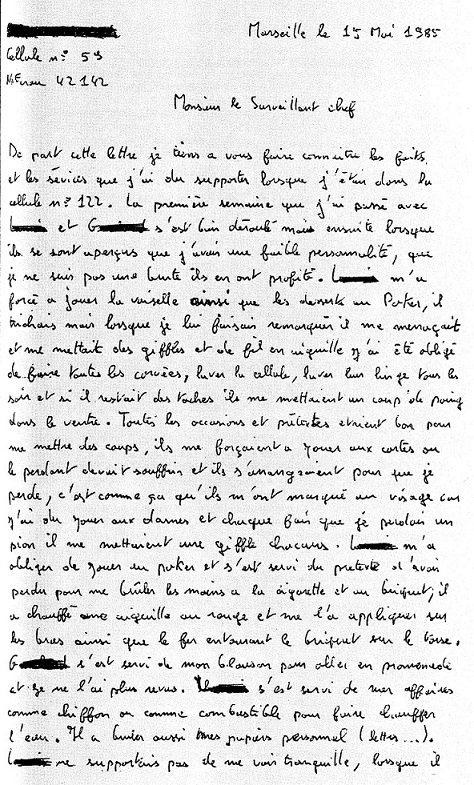 Marseille le 15 Mai 1985
Cellule n° 59
N° Ecrou 42142
Monsieur le Surveillant chef
De part cette lettre je tiens a vous faire connaitre les faits,
et les sévices que j'ai du supporter lorsque j'étais dans la
cellule n° 122. La première semaine que j'ai passé avec
et s'est bien déroulé mais ensuite lorsque
ils se sont aperçus que j'avais une faible personnalité, que
je ne suis pas une brute ils en ont profité. m'a
forcé a jouer la vaiselle ainsi que les desserts au Poker, il
trichait mais lorsque je lui faisais remarquer il me menaçait
et me mettait des giffles et de fil en aiguille j'ai été obligé
de faire toutes les corvées, laver la cellule, laver leur linge tous les
soir et si il restait des taches ils me mettaient un coup de poing
dans le ventre. Toutes les occasions et prétextes etaient bon pour
me mettre des coups, ils me forçaient a jouer aux cartes ou
le perdant devait souffrir et ils s'arrangeaient pour que je
perde, c'est comme ça qu'ils m'ont marqué au visage car
j'ai du jouer aux dames et chaque fois que je perdais un
pion il me mettaient une giffle chacuns. m'a
obliger de jouer au poker et s'est servi du pretexte d'avoir
perdu pour me bruler les mains a la cigarette et au briquet, il
a chauffé une aiguille au rouge et me l'a appliquer sur
les bras ainsi que le fer entourant le briquet sur le torse.
s'est servi de mon blouson pour aller en promenade
et je ne l'ai plus revu. s'est servi de mes affaires
comme chiffon ou comme combustible pour faire chauffer
l'eau. Il a bruler aussi mes papiers personnel (lettres...).
ne supportais pas de me voir tranquille, lorsque il